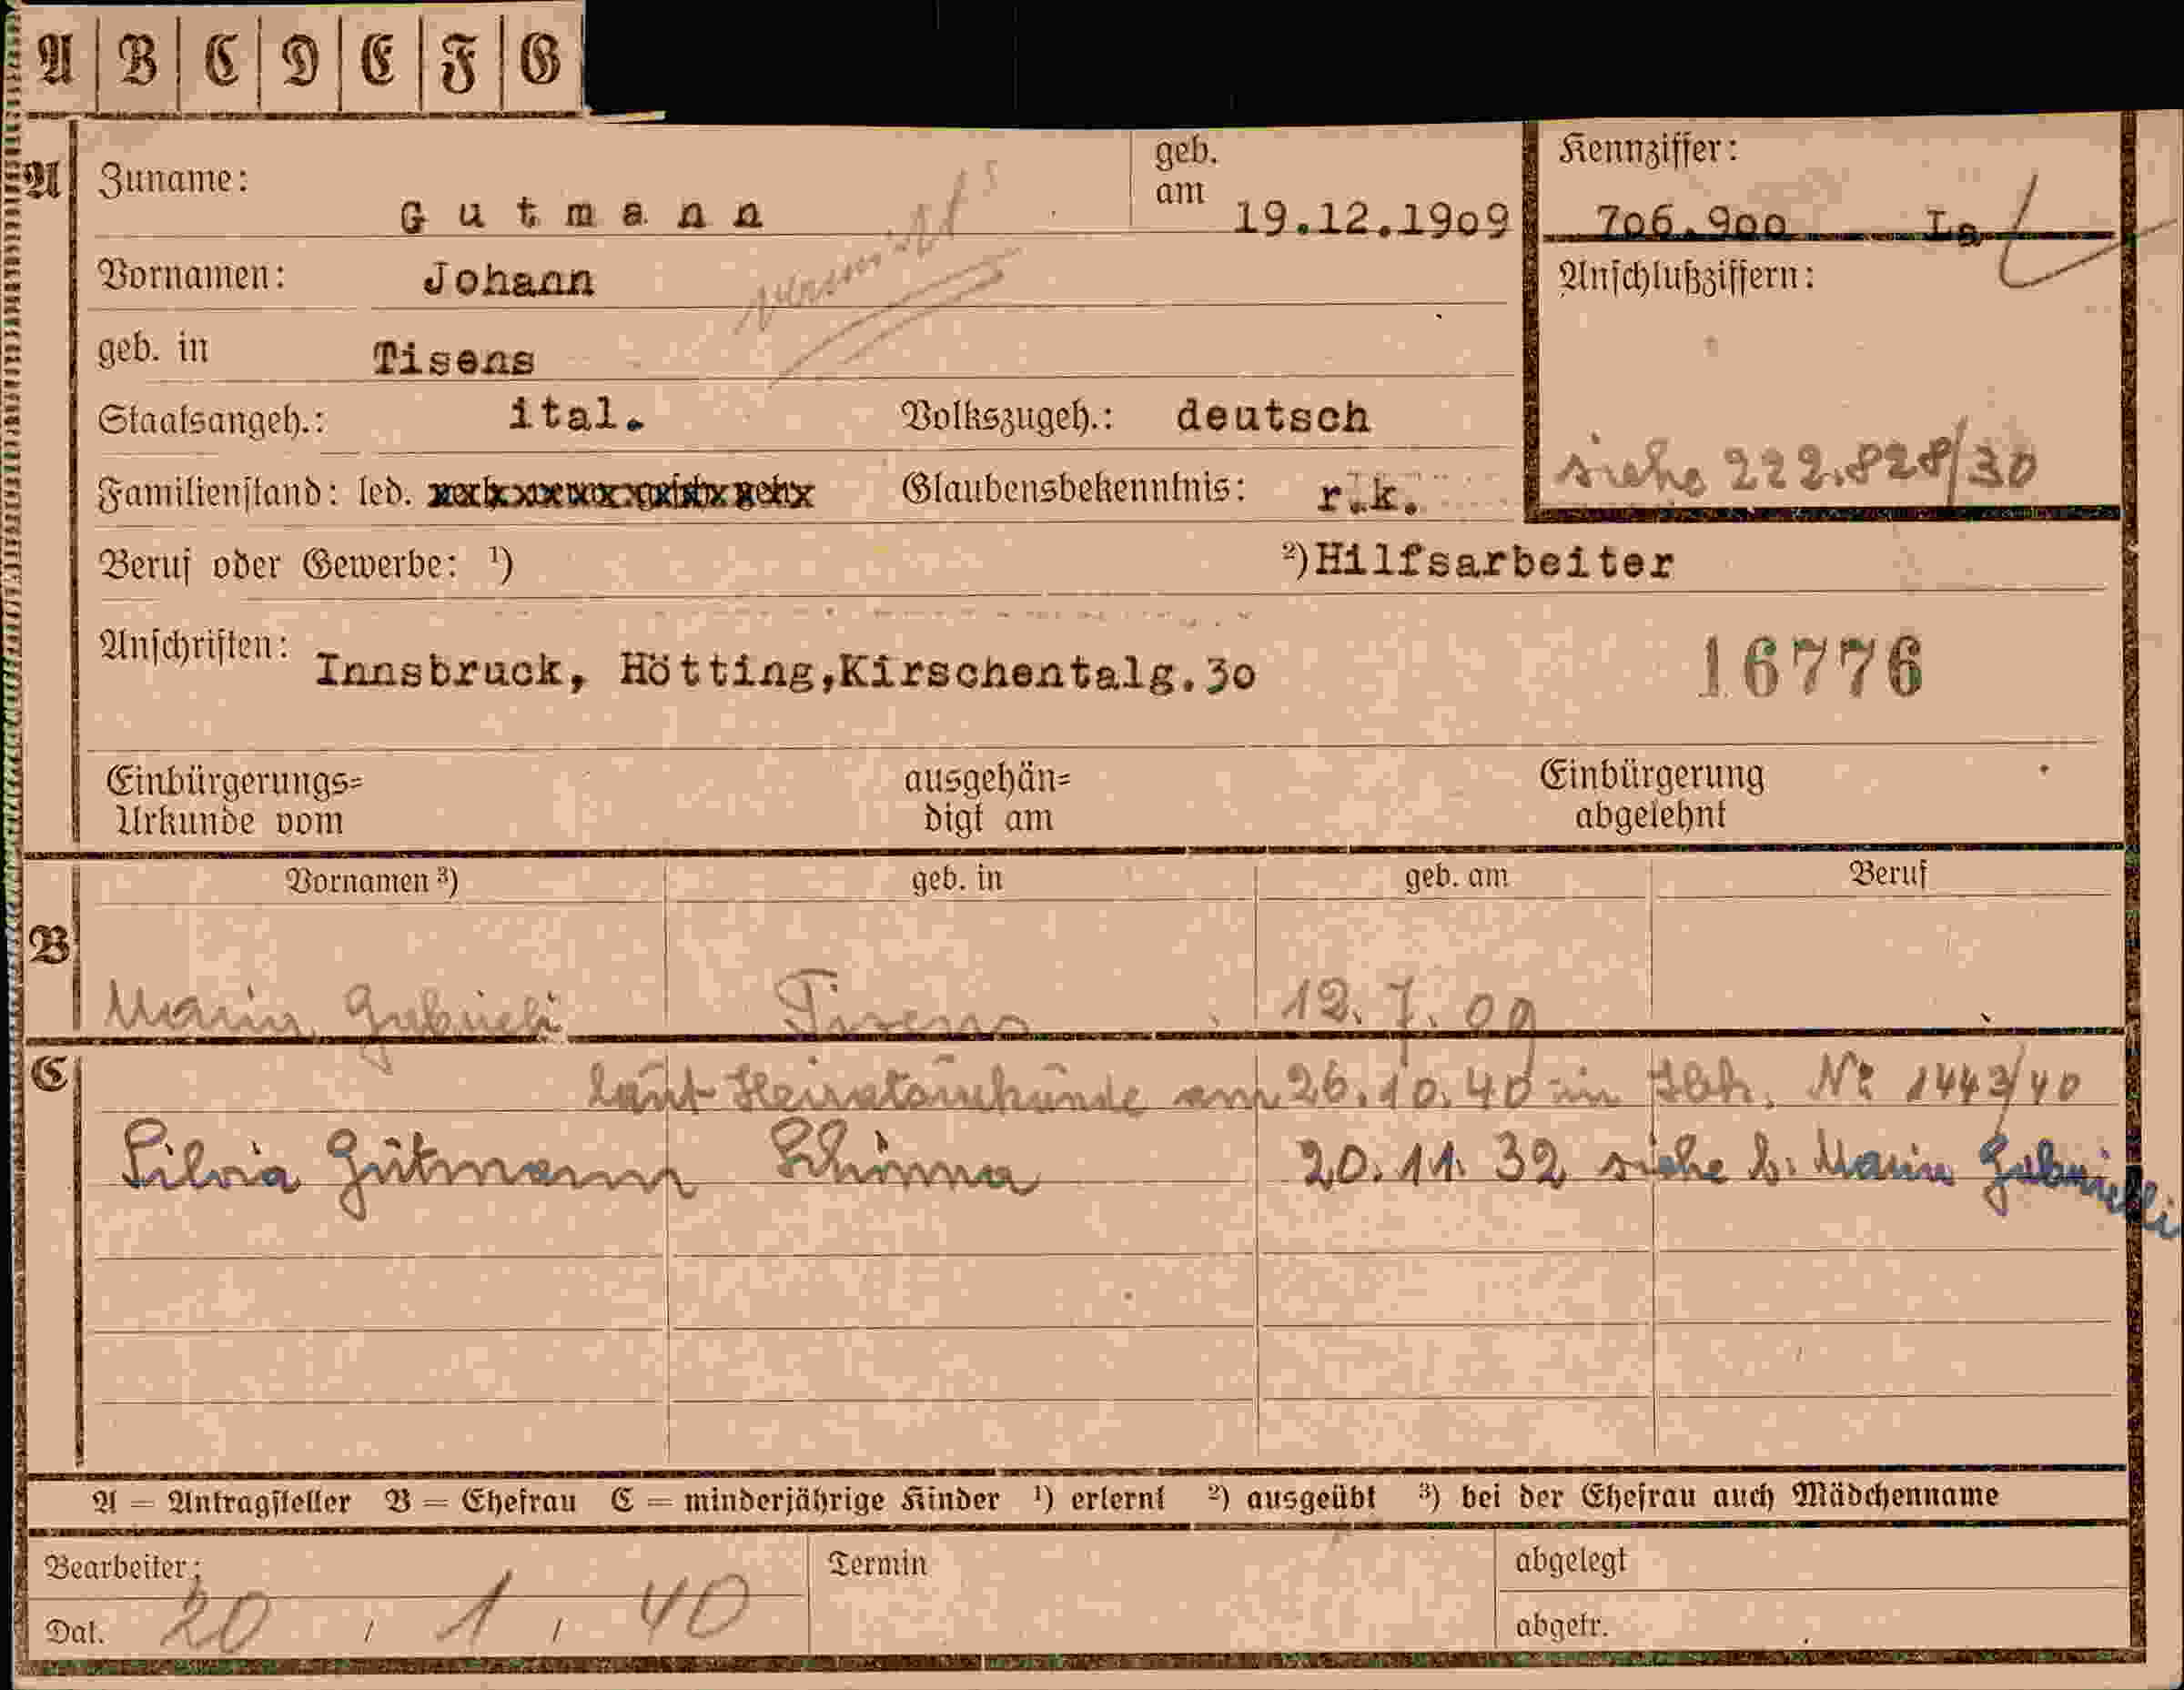 A B C D E F G
A
Zuname: Gutmann
geb. am 19.12.1909
Kennziffer: 706.900
Vornamen: Johann
Anschlußziffern:
geb. in Tisens
Staatsangeh.: ital. Volkszugeh.: deutsch
siehe 222.828/30
Familienstand: led. Glaubensbekenntnis: r.k.
Beruf oder Gewerbe: ¹) ²) Hilfsarbeiter
Anschriften: Innsbruck, Hötting,Kirschentalg.30
16776
Einbürgerungs= ausgehän= Einbürgerung
Urkunde vom digt am abgelehnt
Vornamen ³) geb. in geb. am Beruf
B
Maria Gabrieli Tisens 12.7.09
C
laut Heiratsurkunde am 26.10.40 in Ibk. Nr 1443/40
Silvia Gutmann 20.11.32 siehe b. Maria Gabrielli
A = Antragsteller B = Ehefrau C = minderjährige Kinder ¹) erlernt ²) ausgeübt ³) bei der Ehefrau auch Mädchenname
Bearbeiter: Termin abgelegt
Dat. 20 / 1 / 40 abgefr.